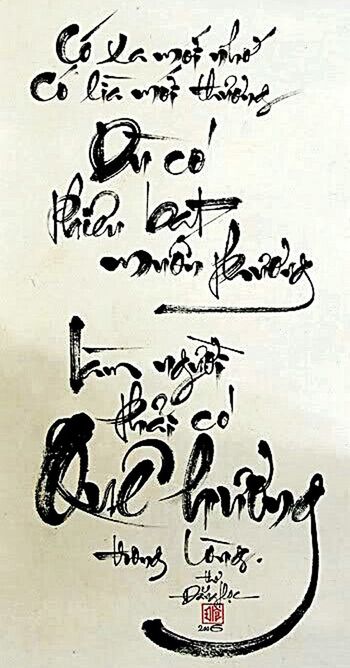 Có xa mới nhớ
Có lìa mới thương
Dù có
phiêu bạt
muôn phương
Làm người
phải có
Quê hương
trong lòng.
thơ